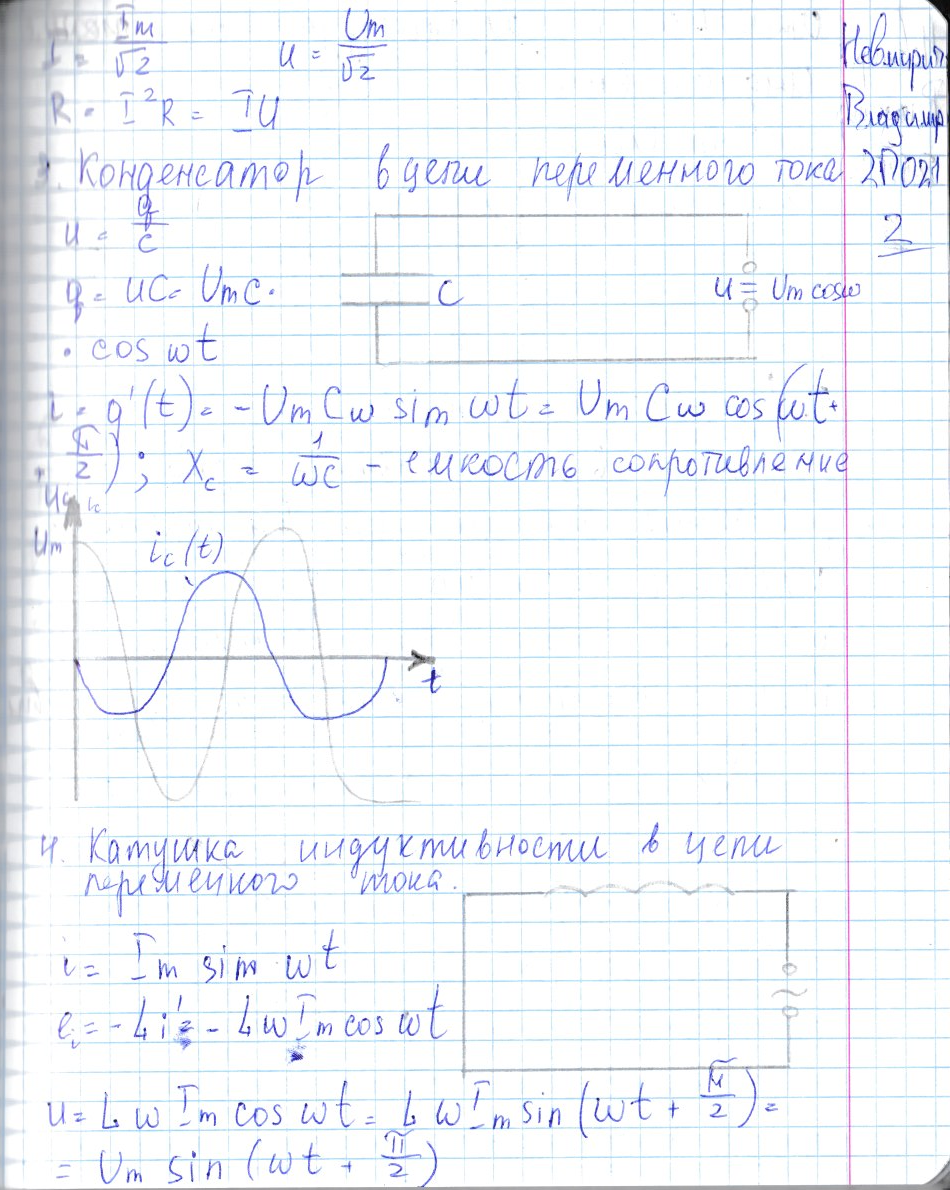 I = Im/√2    U = Um/√2
R = I²R = IU
Владимир
2П021
2
3. Конденсатор в цепи переменного тока
u = q/c
q = UC = UmC ·
· cos ωt
C    u = Um cosω
i = q'(t) = - UmCω sin ωt = Um Cω cos (ωt +
+ π/2) ; Xc = 1/ωC - емкость сопротивление
Um
ic(t)
t
4. Катушка индуктивности в цепи
переменного тока.
i = Im sin ωt
ei = - Li' = - LωIm cos ωt
~
u = L ω Im cos ωt = L ω Im sin (ωt + π/2) =
= Um sin (ωt + π/2)